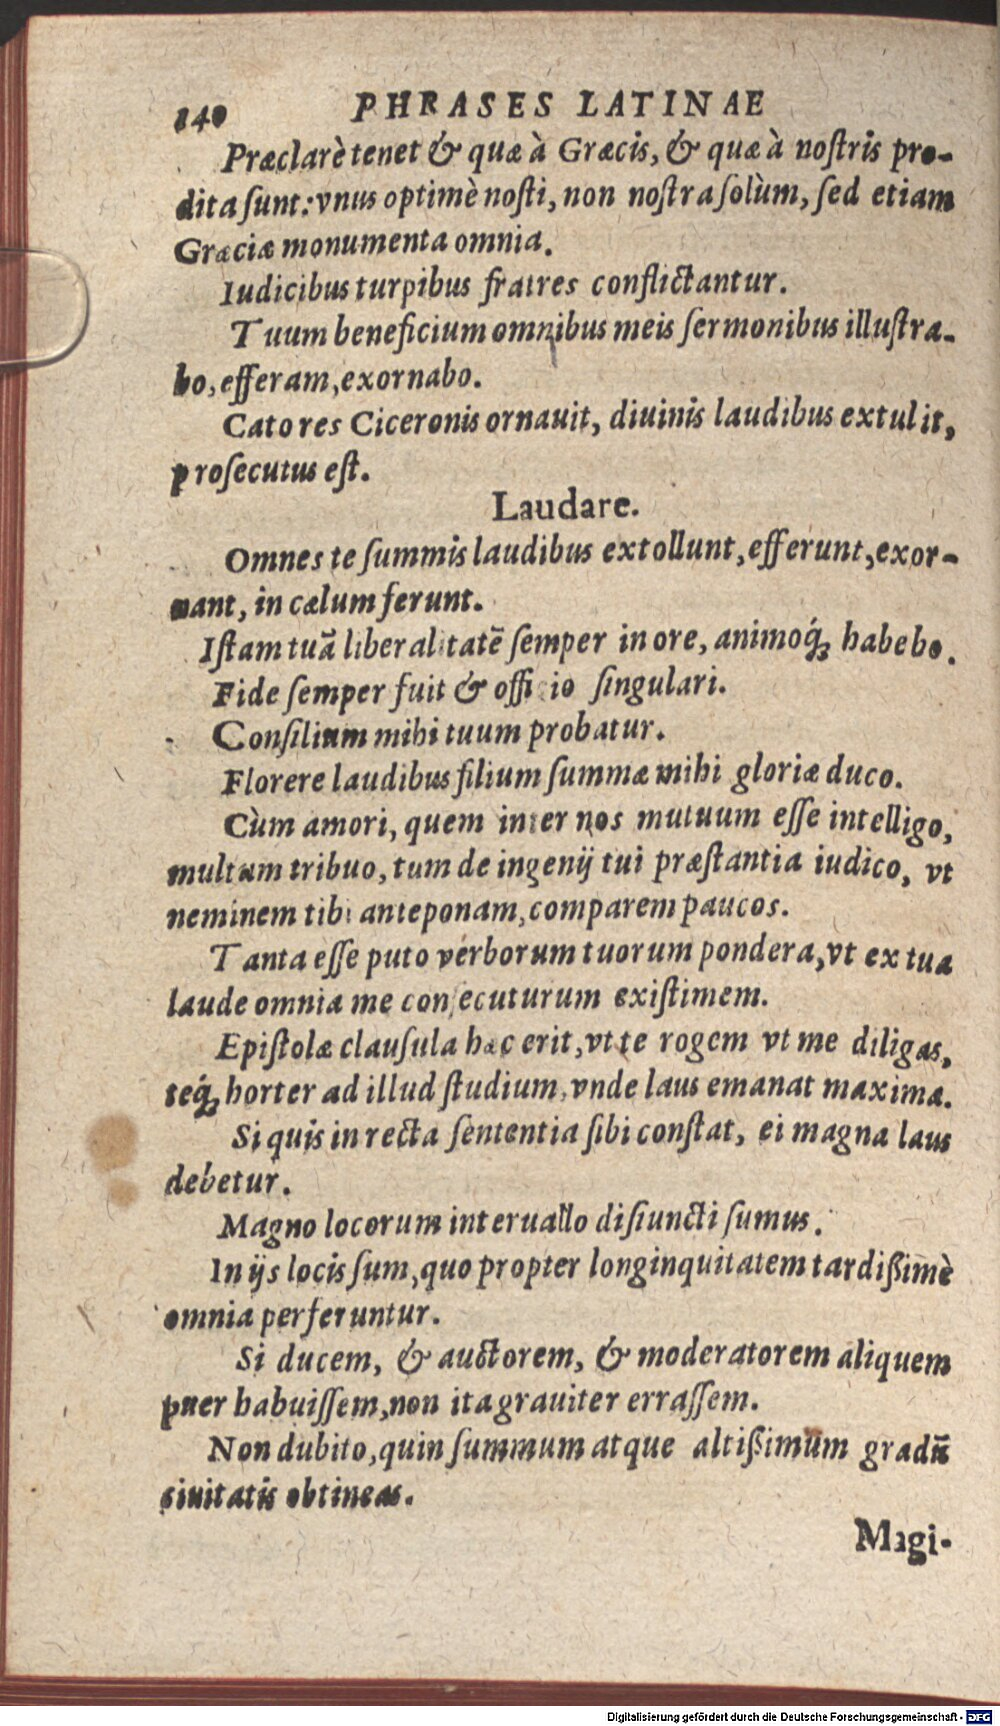 140 PHRASES LATINAE
Præclarè tenet & quæ à Græcis, & quæ à nostris pro-
dita sunt: vnus optimè nosti, non nostra solùm, sed etiam
Græciæ monumenta omnia.
Iudicibus turpibus fratres conflictantur.
Tuum beneficium omnibus meis sermonibus illustra-
bo, efferam, exornabo.
Cato res Ciceronis ornauit, diuinis laudibus extulit,
prosecutus est.
Laudare.
Omnes te summis laudibus extollunt, efferunt, exor-
nant, in cælum ferunt.
Istam tuã liberalitatẽ semper in ore, animoq́; habebo.
Fide semper fuit & officio singulari.
Consilium mihi tuum probatur.
Florere laudibus filium summæ mihi gloriæ duco.
Cùm amori, quem inter nos mutuum esse intelligo,
multum tribuo, tum de ingenij tui præstantia iudico, vt
neminem tibi anteponam, comparem paucos.
Tanta esse puto verborum tuorum pondera, vt ex tua
laude omnia me consecuturum existimem.
Epistolæ clausula hæc erit, vt te rogem vt me diligas,
teq́; horter ad illud studium, vnde laus emanat maxima.
Si quis in recta sententia sibi constat, ei magna laus
debetur.
Magno locorum interuallo disiuncti sumus.
In ijs locis sum, quo propter longinquitatem tardißimè
omnia perferuntur.
Si ducem, & auctorem, & moderatorem aliquem
puer habuissem, non ita grauiter errassem.
Non dubito, quin summum atque altißimum gradũ
ciuitatis obtineas.
Magi-
Digitalisierung gefördert durch die Deutsche Forschungsgemeinschaft - DFG